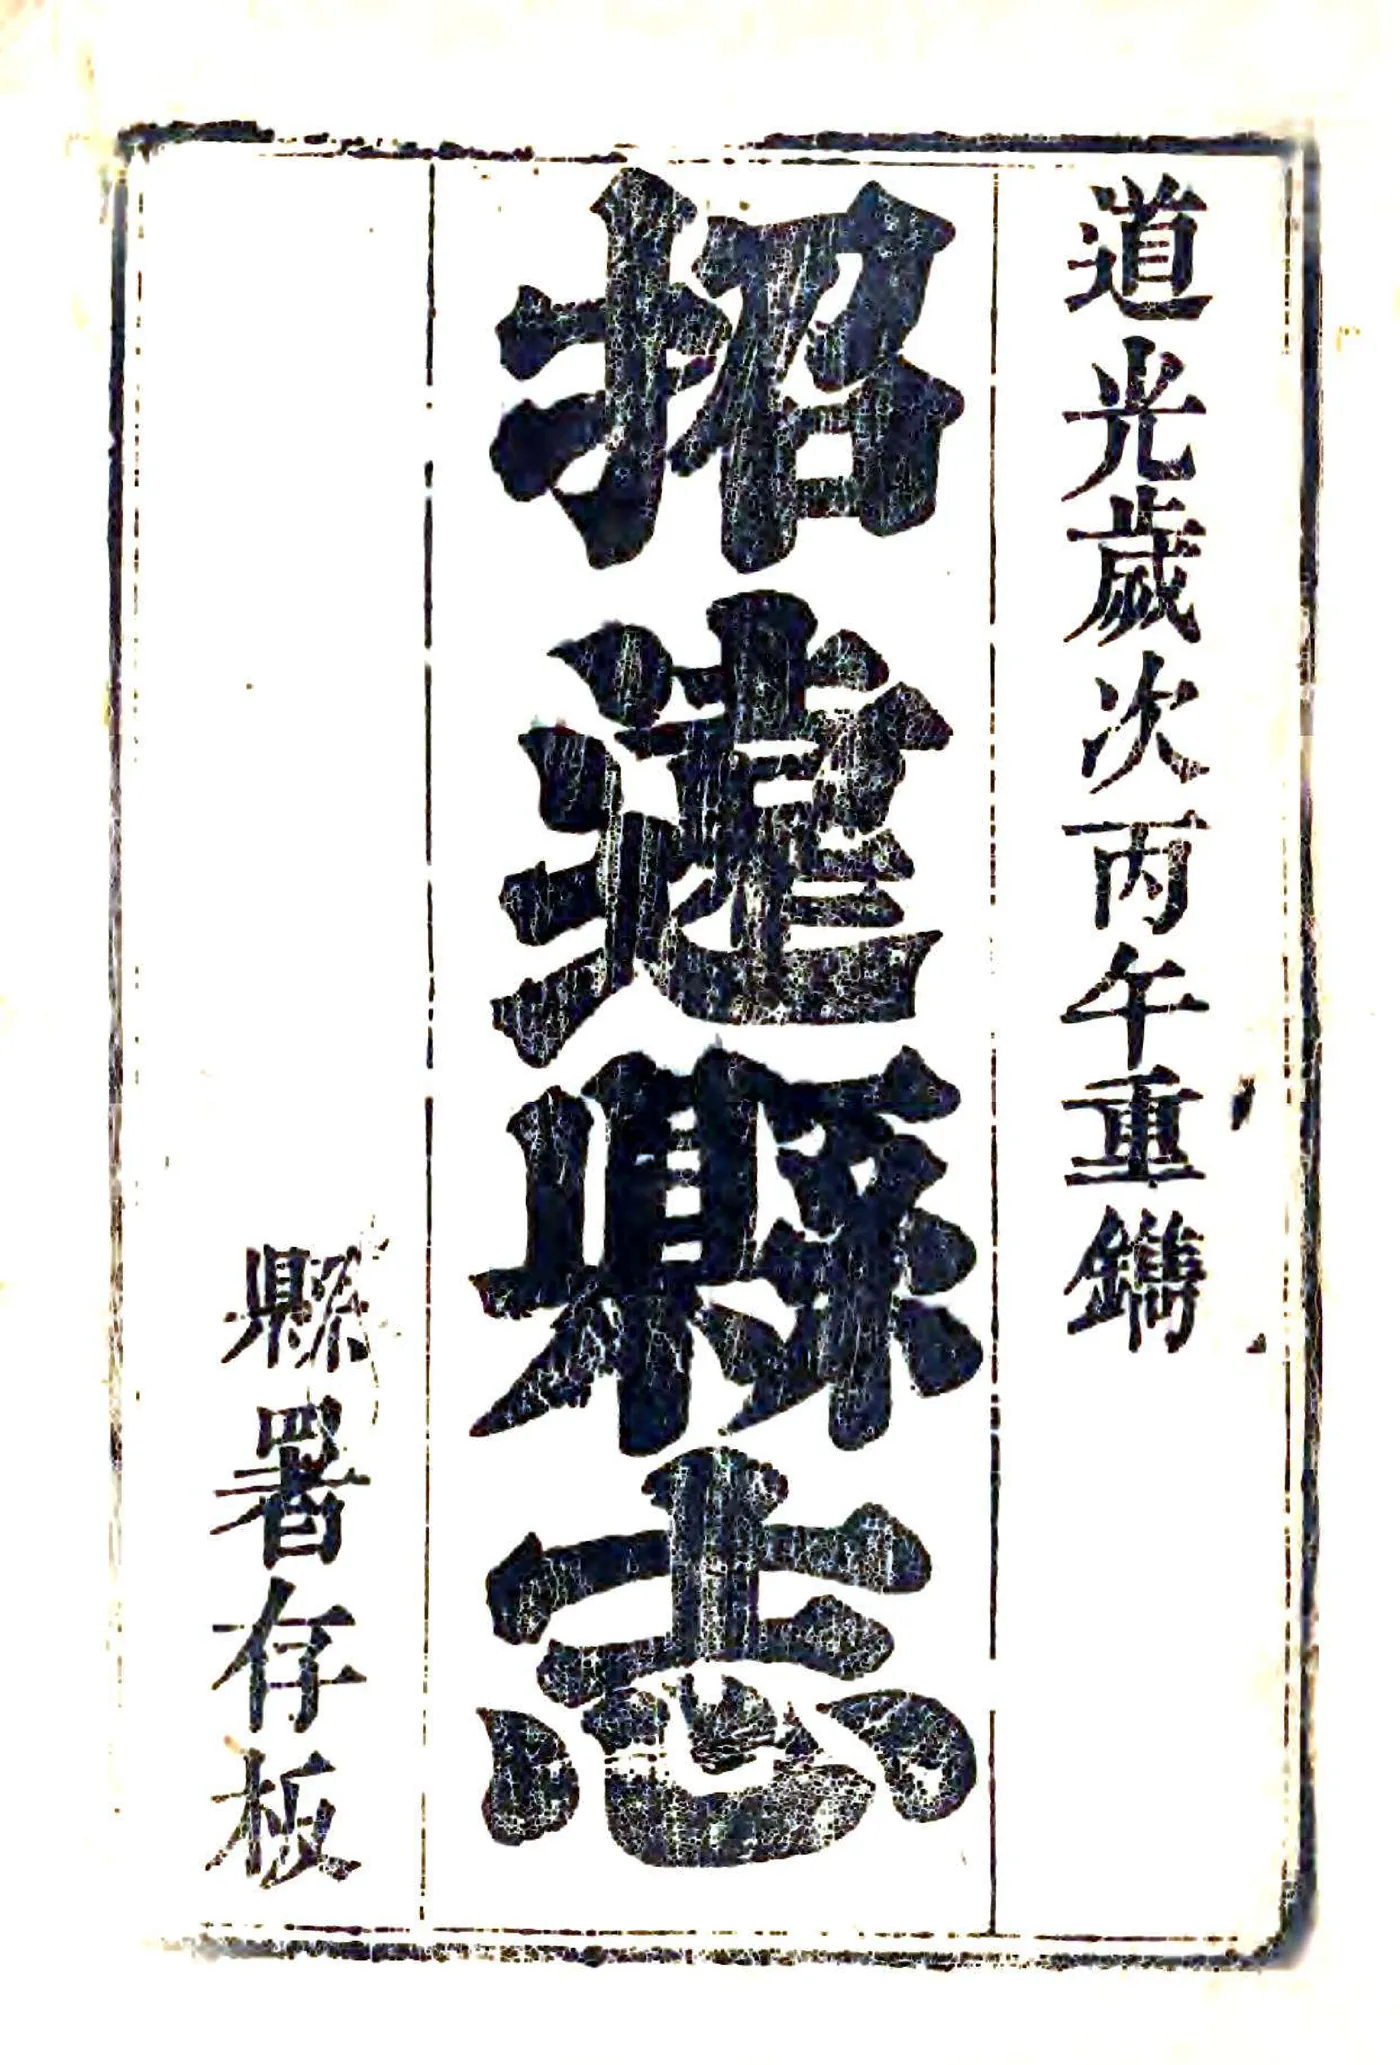 道光歲次丙午重鐫
招遠縣志
縣署存板